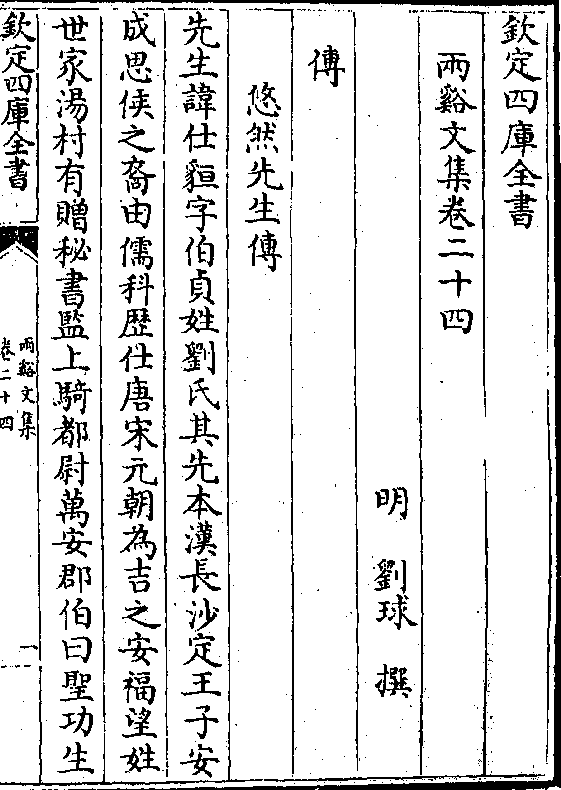 欽定四庫全書
兩谿文集卷二十四
明 劉球 撰
傳
悠然先生傳
先生諱仕貆字伯貞姓劉氏其先本漢長沙定王子安
成思侯之裔由儒科歴仕唐宋元朝為吉之安福望姓
世家湯村有贈秘書監上騎都尉萬安郡伯曰聖功生
欽定四庫全書
兩谿文集
卷二十四
一